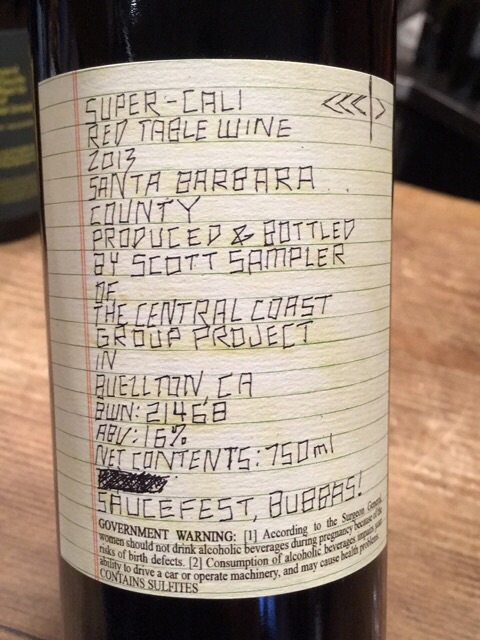 SUPER-CALI
RED TABLE WINE
2013
SANTA BARBARA
COUNTY
PRODUCED & BOTTLED
BY SCOTT SAMPLER
OF
THE CENTRAL COAST
GROUP PROJECT
IN
BUELLTON, CA
BWN: 21468
ABV: 16%
NET CONTENTS: 750ml
SAUCEFEST, BUBBAS!
GOVERNMENT WARNING: [1] According to the Surgeon General,
women should not drink alcoholic beverages during pregnancy because of the
risks of birth defects. [2] Consumption of alcoholic beverages impairs your
ability to drive a car or operate machinery, and may cause health problems.
CONTAINS SULFITES